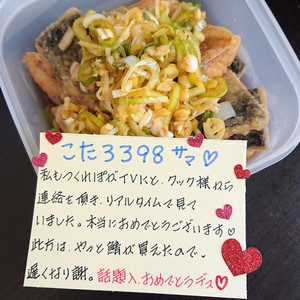 こた3398サマ♡
私もつくれぽがTVにと、クック様から
連絡を頂き、リアルタイムで見て
いました。本当におめでとうございます♡
此方は、やっと鯖が買えたので、
遅くなり謝。話題入、おめでとうデス♡